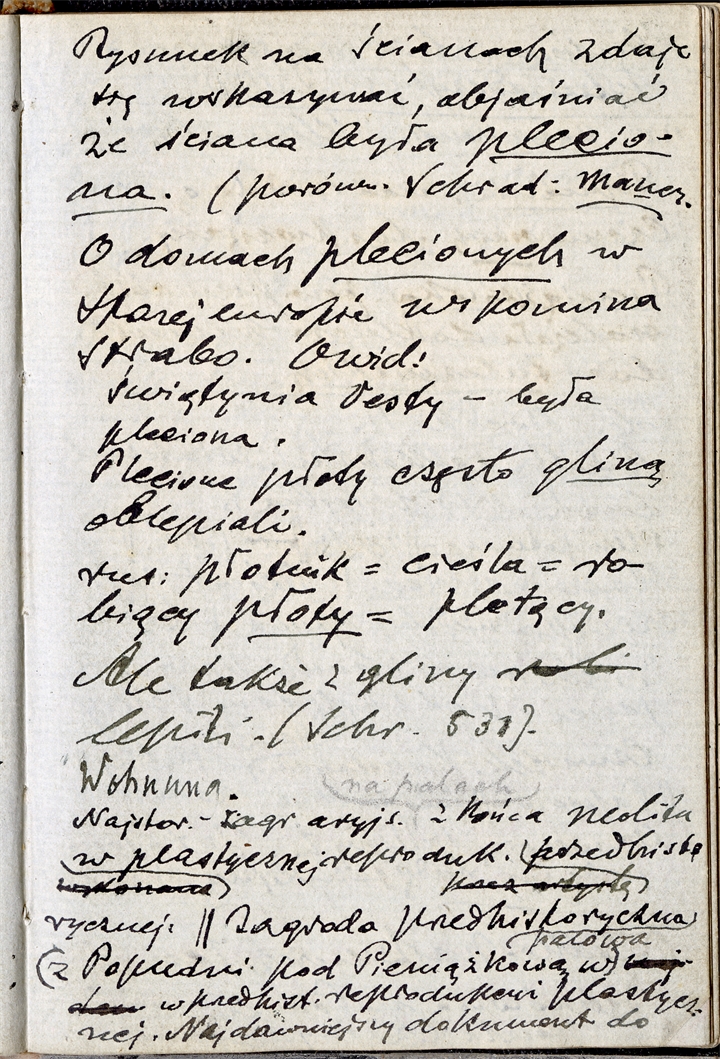 Rysunek na ścianach zdaje
się wskazywać, objaśniać
że ściana była plecio-
na. (porówn. Schrad:
O domach plecionych w
starej europie wspomina
Strabo. Owid:
świątynia Vesty – była
pleciona.
Plecione płoty często gliną
oblepiali.
rus: płotnik = cieśla = ro-
biący płoty = plotący.
Ale także z gliny robi
lepili. (Schr. 531).
Wohnung.
na palach
Najstar. zagr aryjs. z końca neolitu
w plastycznej reproduk. (przedhisto
wykonana
rycznej. || Zagroda przedhistoryczna
palowa
(z Popudni pod Pieniążkową w)
w przedhist. reprodukcyi plastycz-
nej. Najdawniejszy dokument do